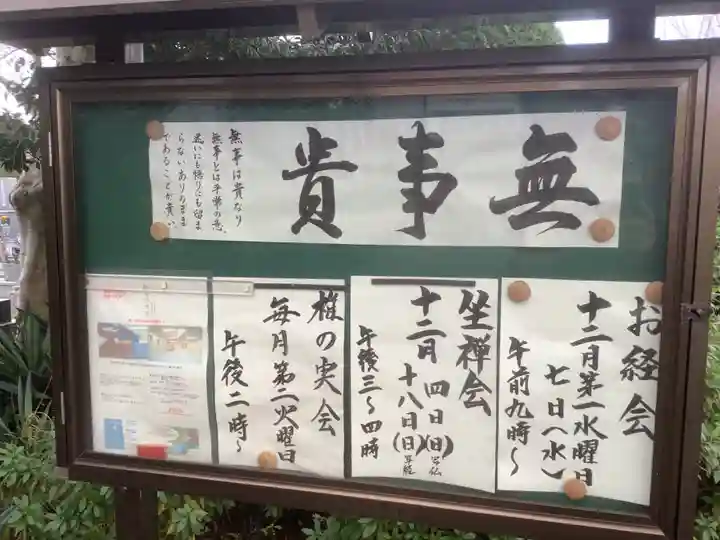 無事貴
無事は貴なり
無事とは平常の意、
迷いにも悟りにも留ま
らないありのまま
であることが貴い。
お経会
十二月第一水曜日
七日(水)
午前九時〜
坐禅会
十二月 四日(日)写仏
十八日(日)写経
午後三〜四時
椎の実会
毎月第二火曜日
午後二時〜